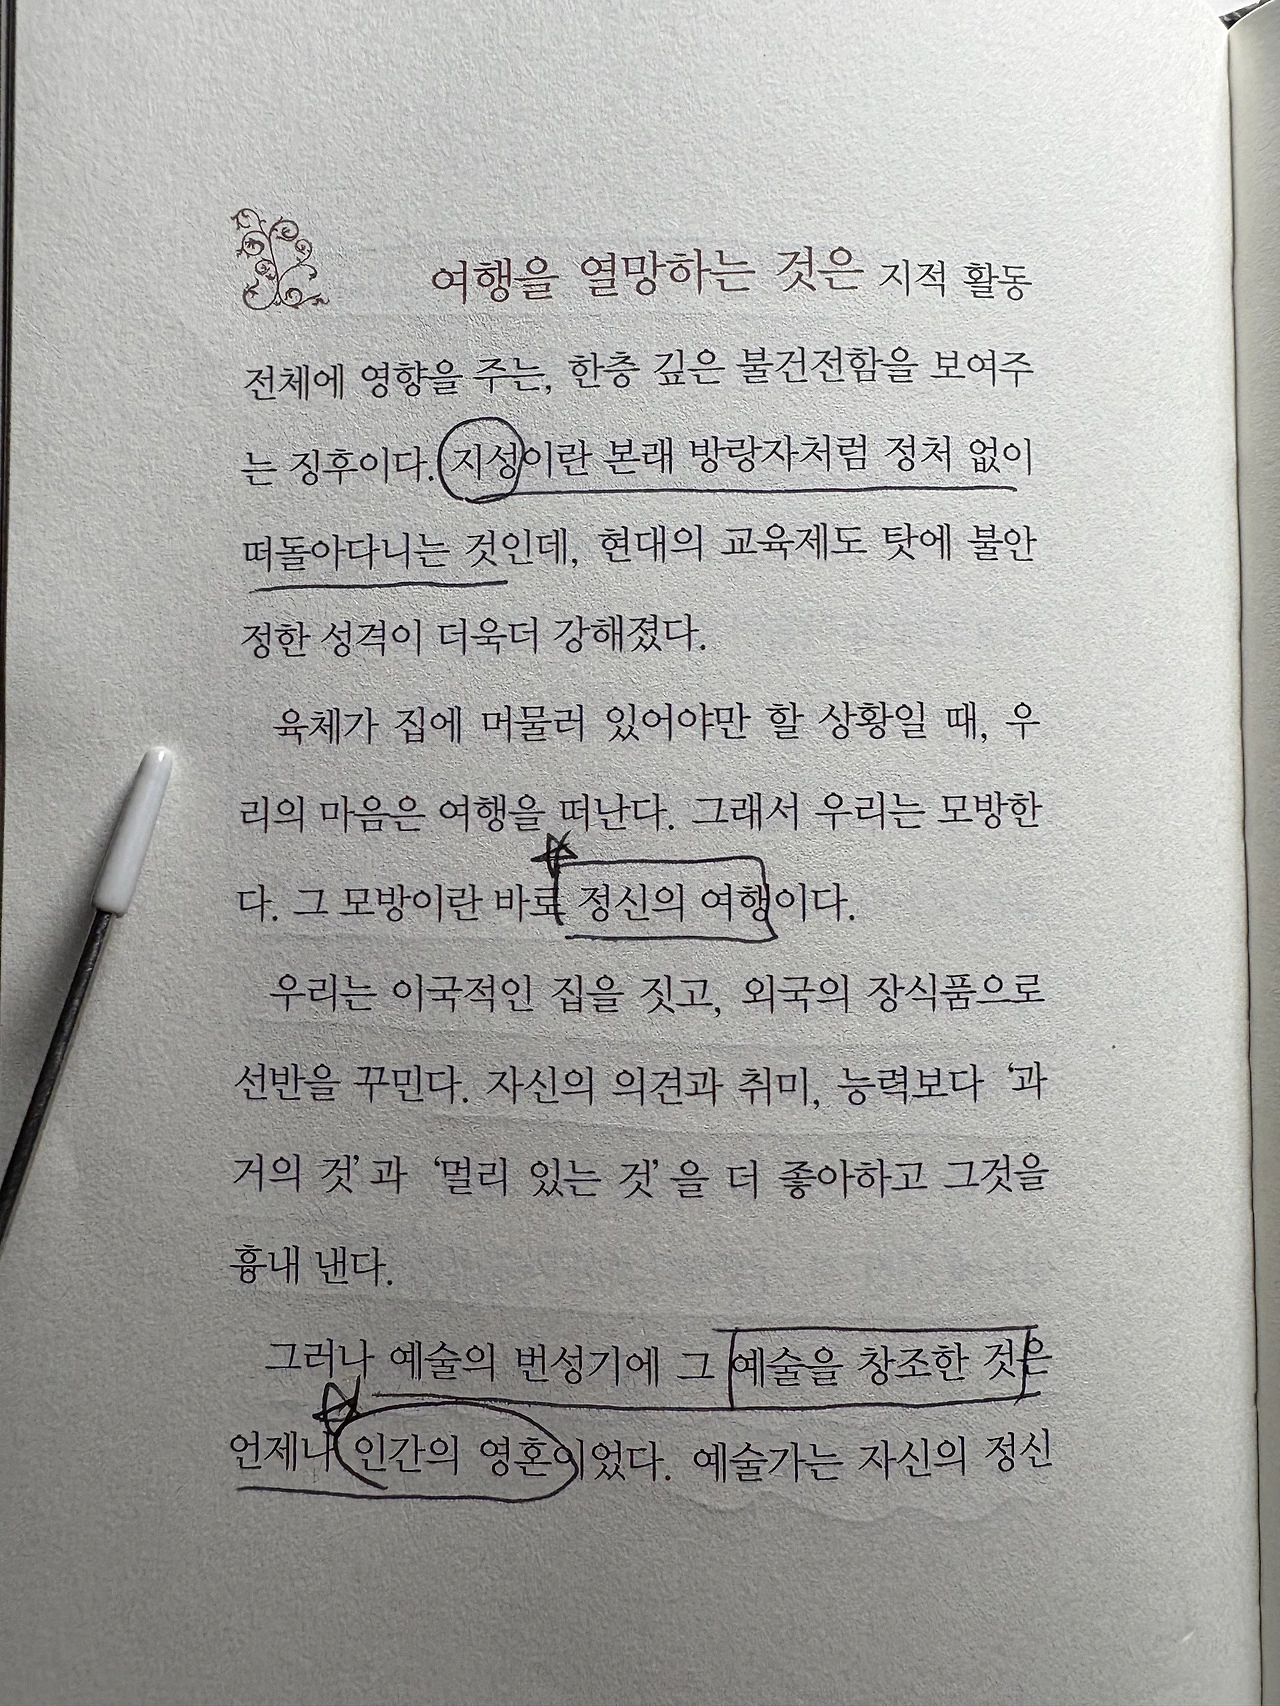 여행을 열망하는 것은 지적 활동
전체에 영향을 주는, 한층 깊은 불건전함을 보여주
는 징후이다. 지성이란 본래 방랑자처럼 정처 없이
떠돌아다니는 것인데, 현대의 교육제도 탓에 불안
정한 성격이 더욱더 강해졌다.
육체가 집에 머물러 있어야만 할 상황일 때, 우
리의 마음은 여행을 떠난다. 그래서 우리는 모방한
다. 그 모방이란 바로 정신의 여행이다.
우리는 이국적인 집을 짓고, 외국의 장식품으로
선반을 꾸민다. 자신의 의견과 취미, 능력보다 ‘과
거의 것’과 ‘멀리 있는 것’을 더 좋아하고 그것을
흉내 낸다.
그러나 예술의 번성기에 그 예술을 창조한 것은
언제나 인간의 영혼이었다. 예술가는 자신의 정신